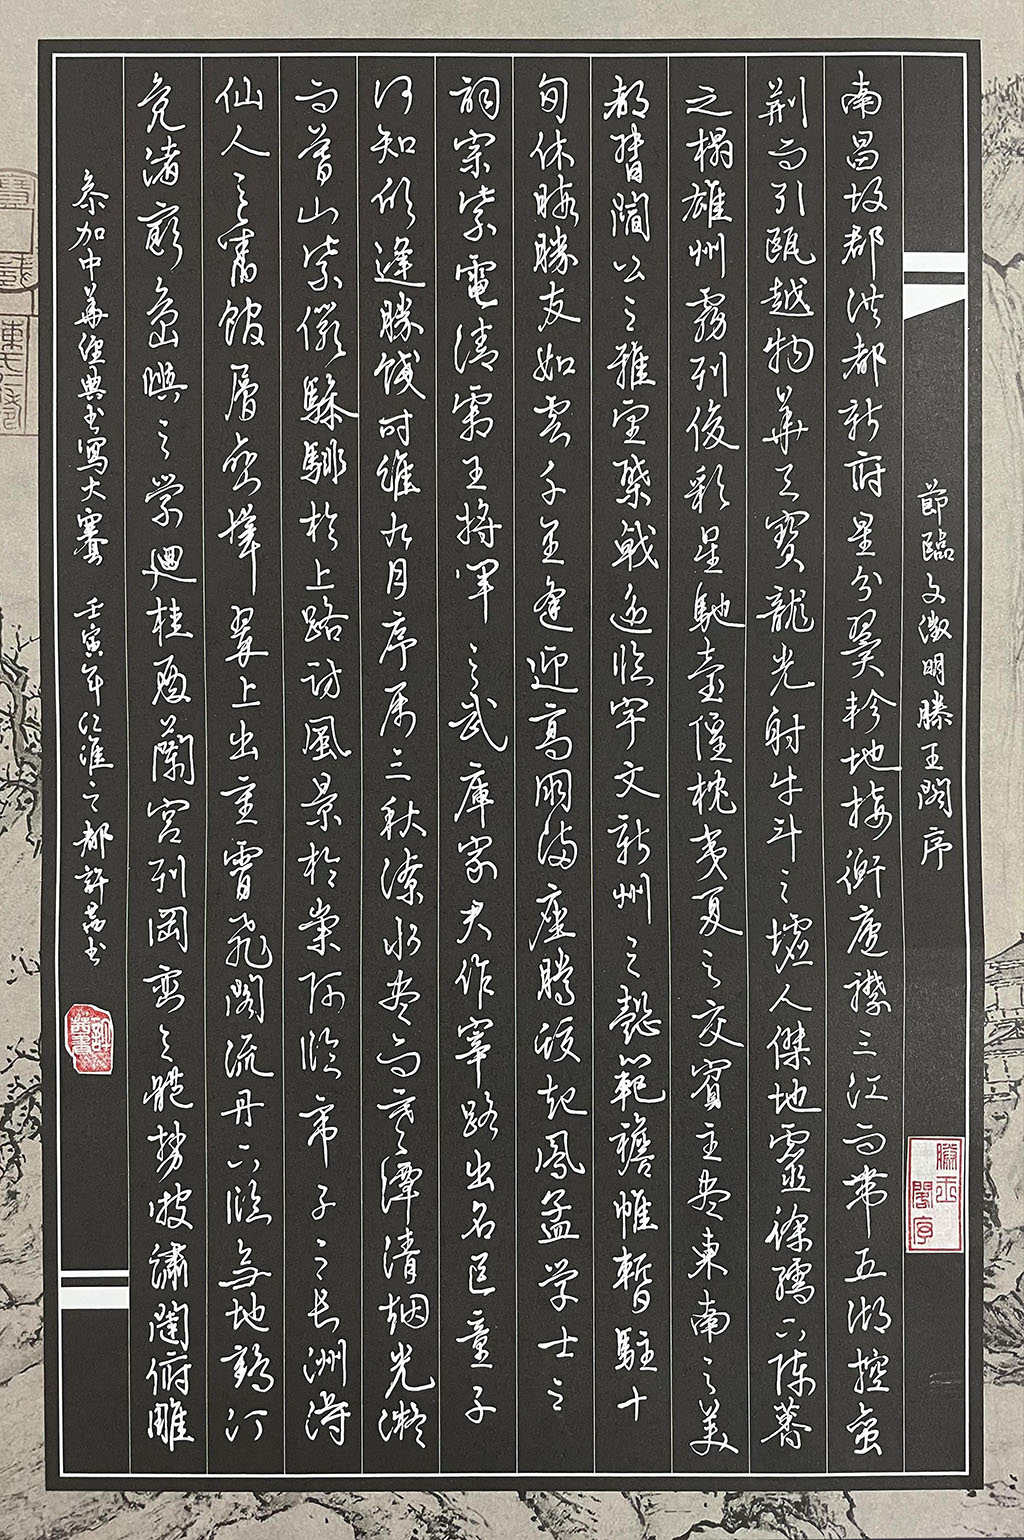 節臨文徵明滕王閣序
滕王閣序
南昌故都洪都新府星分翼軫地接衡廬襟三江而帶五湖控蠻
荆而引甌越物華天寶龍光射牛斗之墟人傑地靈徐孺下陳蕃
之榻雄州霧列俊彩星馳臺隍枕夷夏之交賓主盡東南之美
都督閻公之雅望棨戟遥臨宇文新州之懿範襜帷暫駐十
旬休暇勝友如雲千里逢迎高朋滿座騰蛟起鳳孟学士之
詞宗紫電清霜王將軍之武庫家君作宰路出名區童子
何知躬逢勝餞时維九月序属三秋潦水盡而寒潭清烟光凝
而暮山紫儼驂騑於上路訪風景於崇阿臨帝子之長洲得
仙人之舊館層巒聳翠上出重霄飛閣流丹下臨無地鶴汀
凫渚窮島嶼之縈迴桂殿蘭宫列岡巒之體勢披繡闥俯雕
参加中華經典书寫大賽 壬寅年江淮之都許书